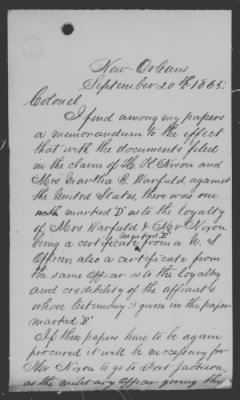 New Orleans
September 20th 1865.
Colonel,
I find among my papers
a memorandum to the effect
that with the documents filed
in the claim of H. H. Nixon and
Mrs Martha B. Warfield, against
the United States, there was one
with marked D as to the loyalty
of Mrs Warfield & Mr Nixon
marked E
being a certificate from a U. S.
Officer also a certificate from
the same officer as to the loyalty
and credibility of the affiants
whose testimony is given in the paper
marked B
If these papers have to be again
procured it will be necessary for
Mr Nixon to go to Fort Jackson,
as the military officer giving the